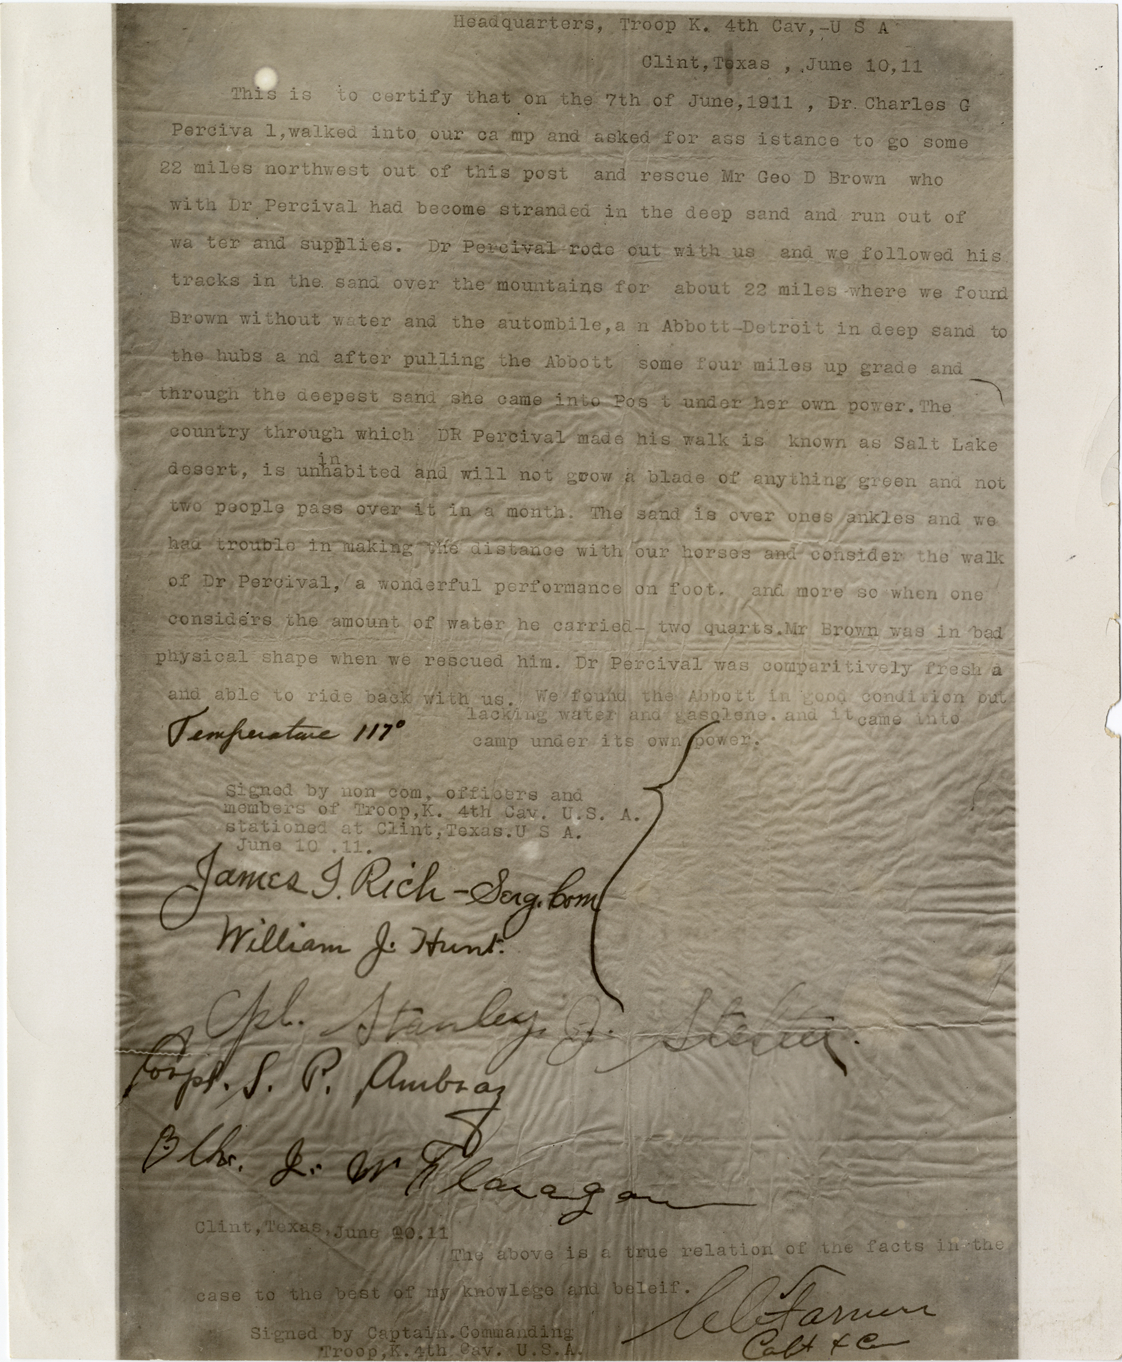 Headquarters, Troop K. 4th Cav,-U S A
Clint,Texas , June 10,11
This is to certify that on the 7th of June,1911 , Dr. Charles G
Perciva l,walked into our ca mp and asked for ass istance to go some
22 miles northwest out of this post and rescue Mr Geo D Brown who
with Dr Percival had become stranded in the deep sand and run out of
wa ter and supplies. Dr Percival rode out with us and we followed his
tracks in the sand over the mountains for about 22 miles where we found
Brown without water and the autombile,a n Abbott-Detroit in deep sand to
the hubs a nd after pulling the Abbott some four miles up grade and
through the deepest sand she came into Pos t under her own power.The
country through which DR Percival made his walk is known as Salt Lake
in
desert, is unhabited and will not grow a blade of anything green and not
two people pass over it in a month. The sand is over ones ankles and we
had trouble in making the distance with our horses and consider the walk
of Dr Percival, a wonderful performance on foot. and more so when one
considers the amount of water he carried- two quarts.Mr Brown was in bad
physical shape when we rescued him. Dr Percival was comparitively fresh a
and able to ride back with us. We found the Abbott in good condition but
lacking water and gasolene. and it came into
Temperature 117°
camp under its own power.
Signed by non com, officers and
members of Troop,K. 4th Cav. U.S. A.
stationed at Clint,Texas.U S A.
June 10 .11.
James I. Rich - Serg. Com
William J. Hunt.
Cpl. Stanley J.
Corpl. S. P.
J. W Flanagan
Clint,Texas,June 10.11
The above is a true relation of the facts in the
case to the best of my knowlege and beleif.
Farmer
Signed by Captain.Commanding
Troop,K.4th Cav. U.S.A.